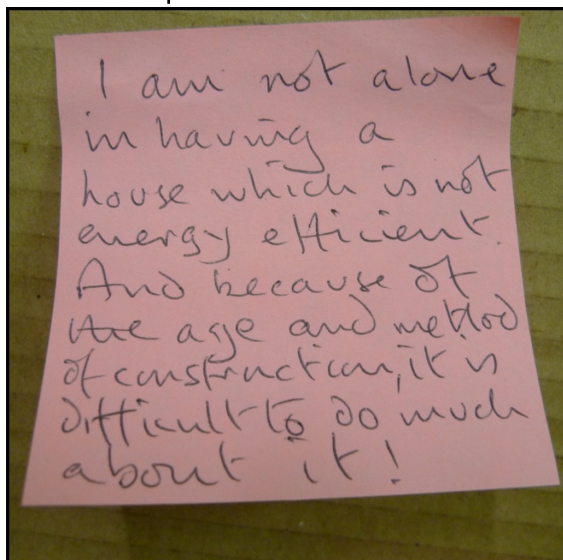 I am not alone
in having a
house which is not
energy efficient.
And because of
the age and method
of construction, it is
difficult to do much
about it!